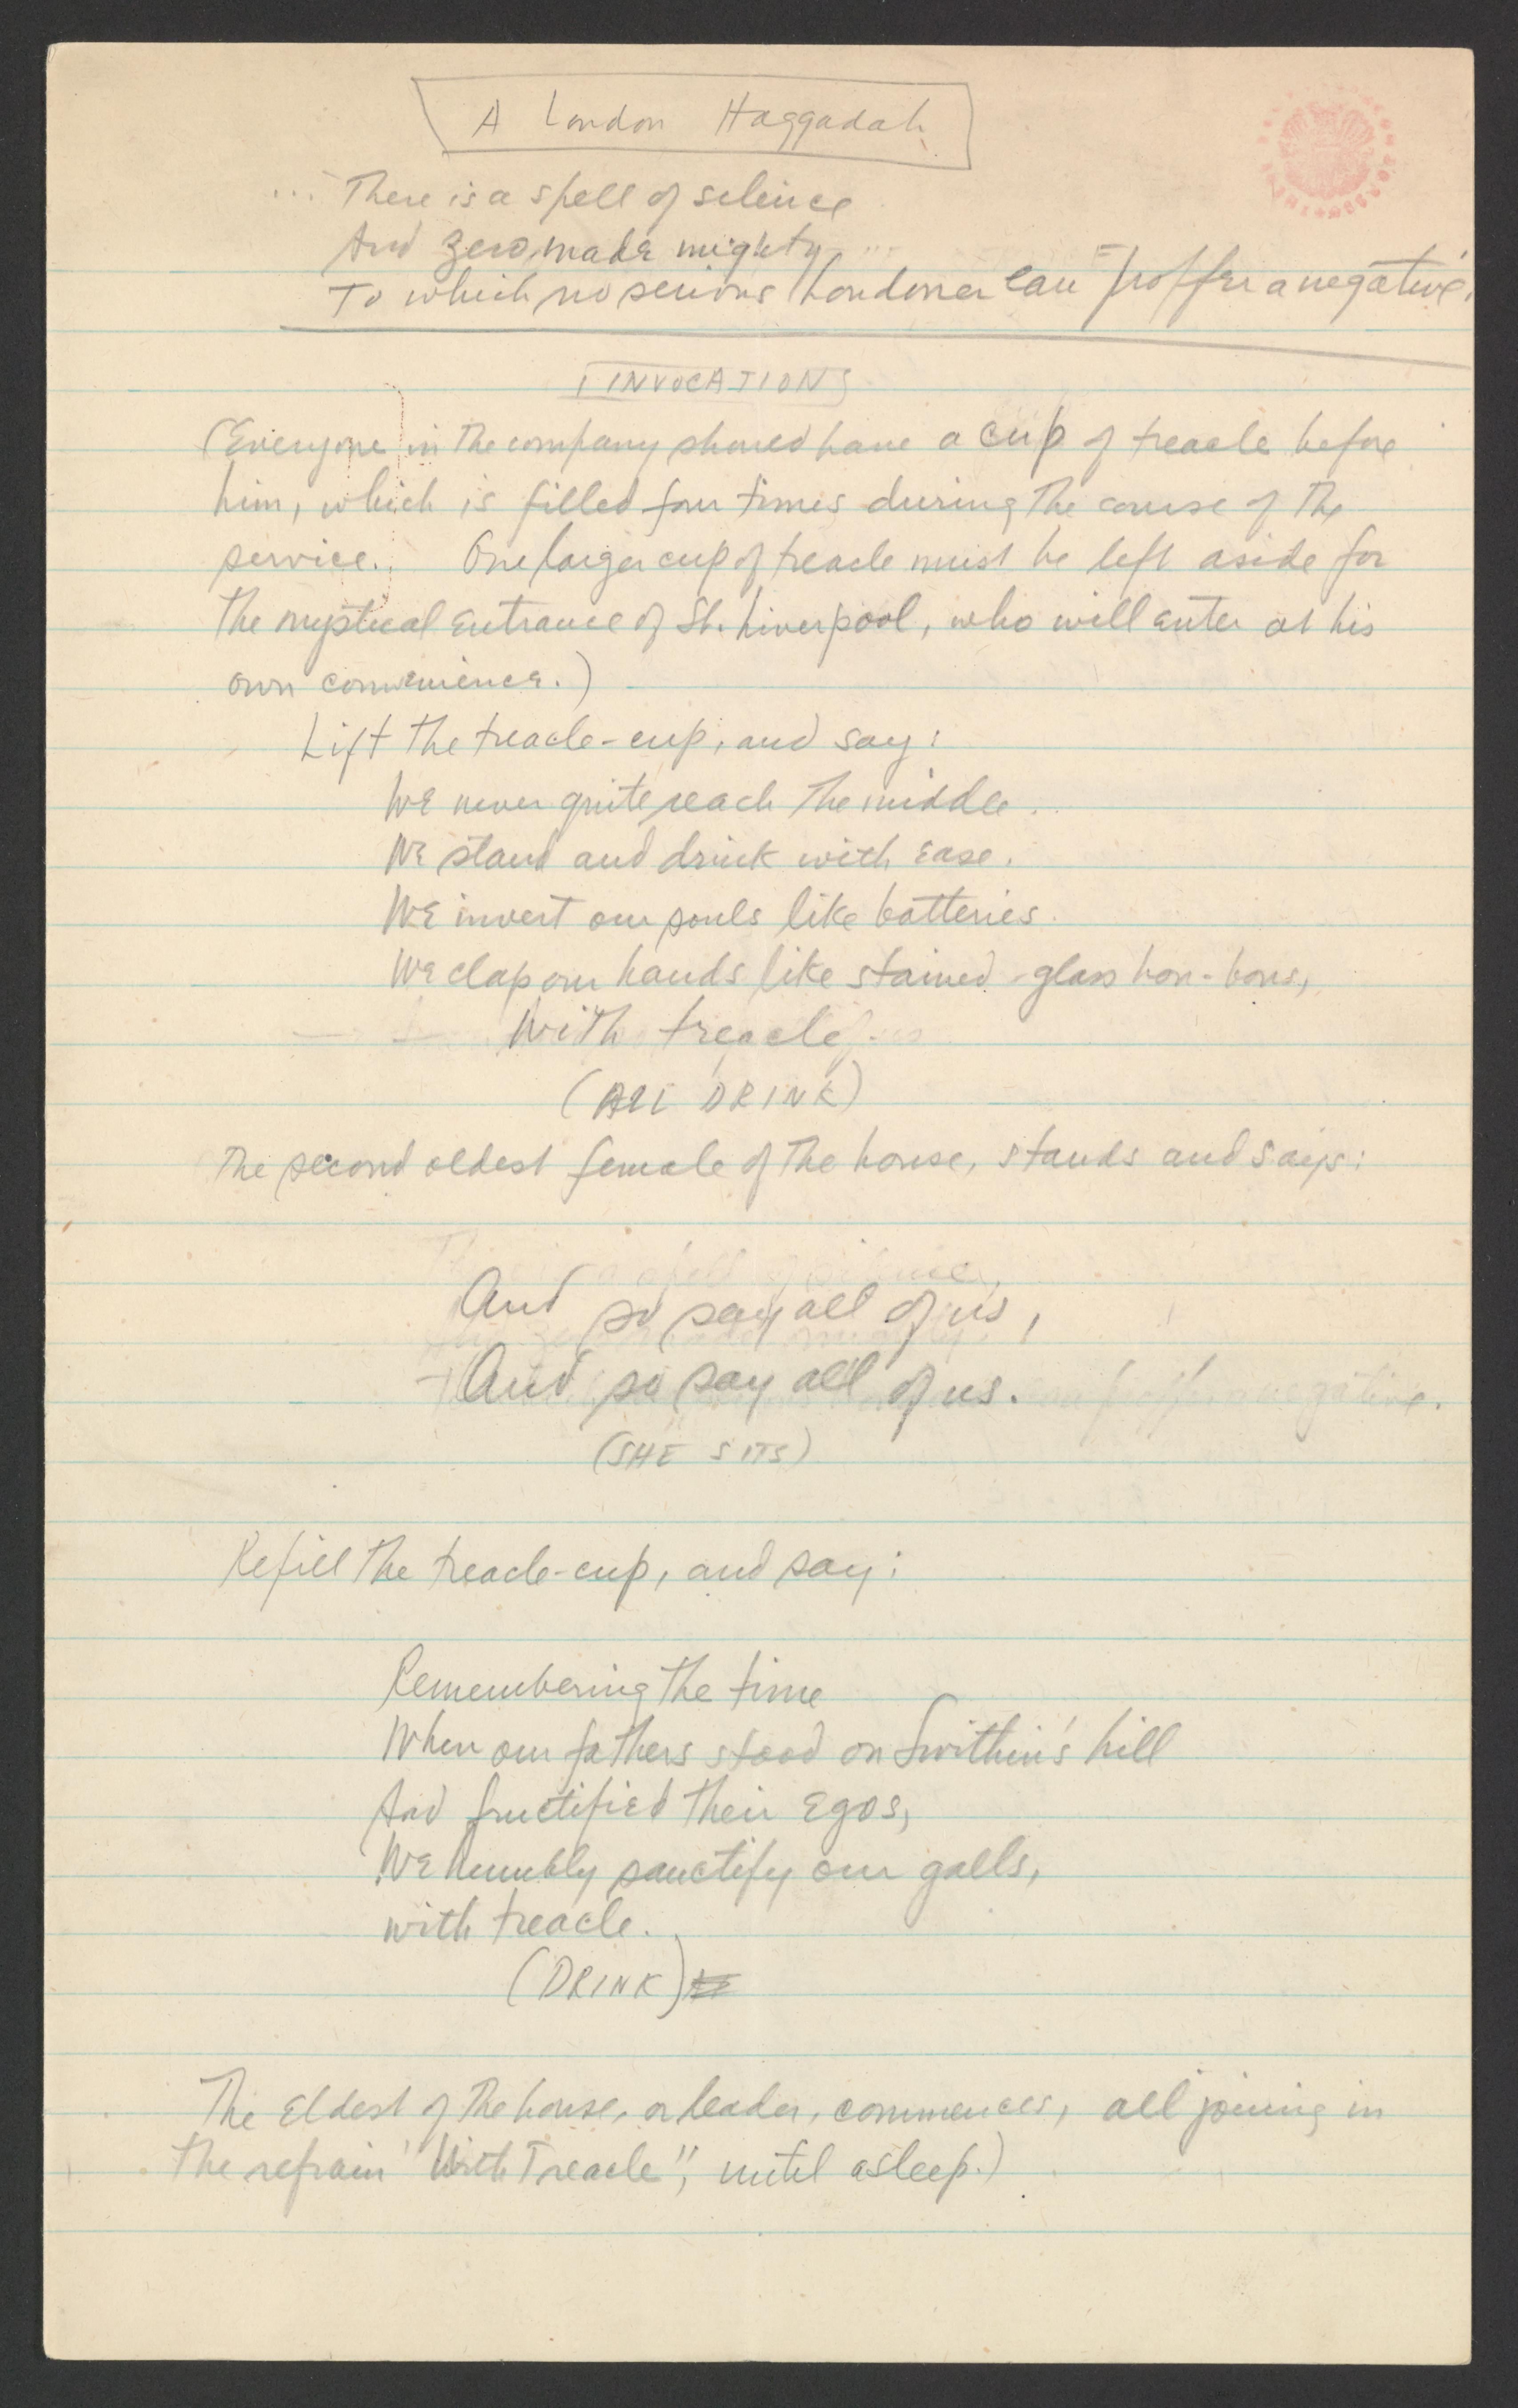 A London Haggadah
... There is a spell of silence
And zero, made mighty ...
To which no serious Londoner can proffer a negative.
INVOCATIONS
(Everyone in the company should have a cup of treacle before
him, which is filled four times during the course of the
service. One larger cup of treacle must be left aside for
the mystical entrance of St. Liverpool, who will enter at his
own convenience.)
Lift the treacle-cup, and say:
We never quite reach the middle.
We stand and drink with ease.
We invert our souls like batteries.
We clap our hands like stained-glass bon-bons,
With treacle.
(ALL DRINK)
The second oldest female of the house, stands and says:
And so say all of us,
And so say all of us.
(SHE SITS)
Refill the treacle-cup, and say:
Remembering the time
When our fathers stood on Swithin's hill
And fructified their egos,
We humbly sanctify our galls,
with treacle.
(DRINK)
The Eldest of the house, or leader, commences, all joining in
the refrain "With Treacle", until asleep.)